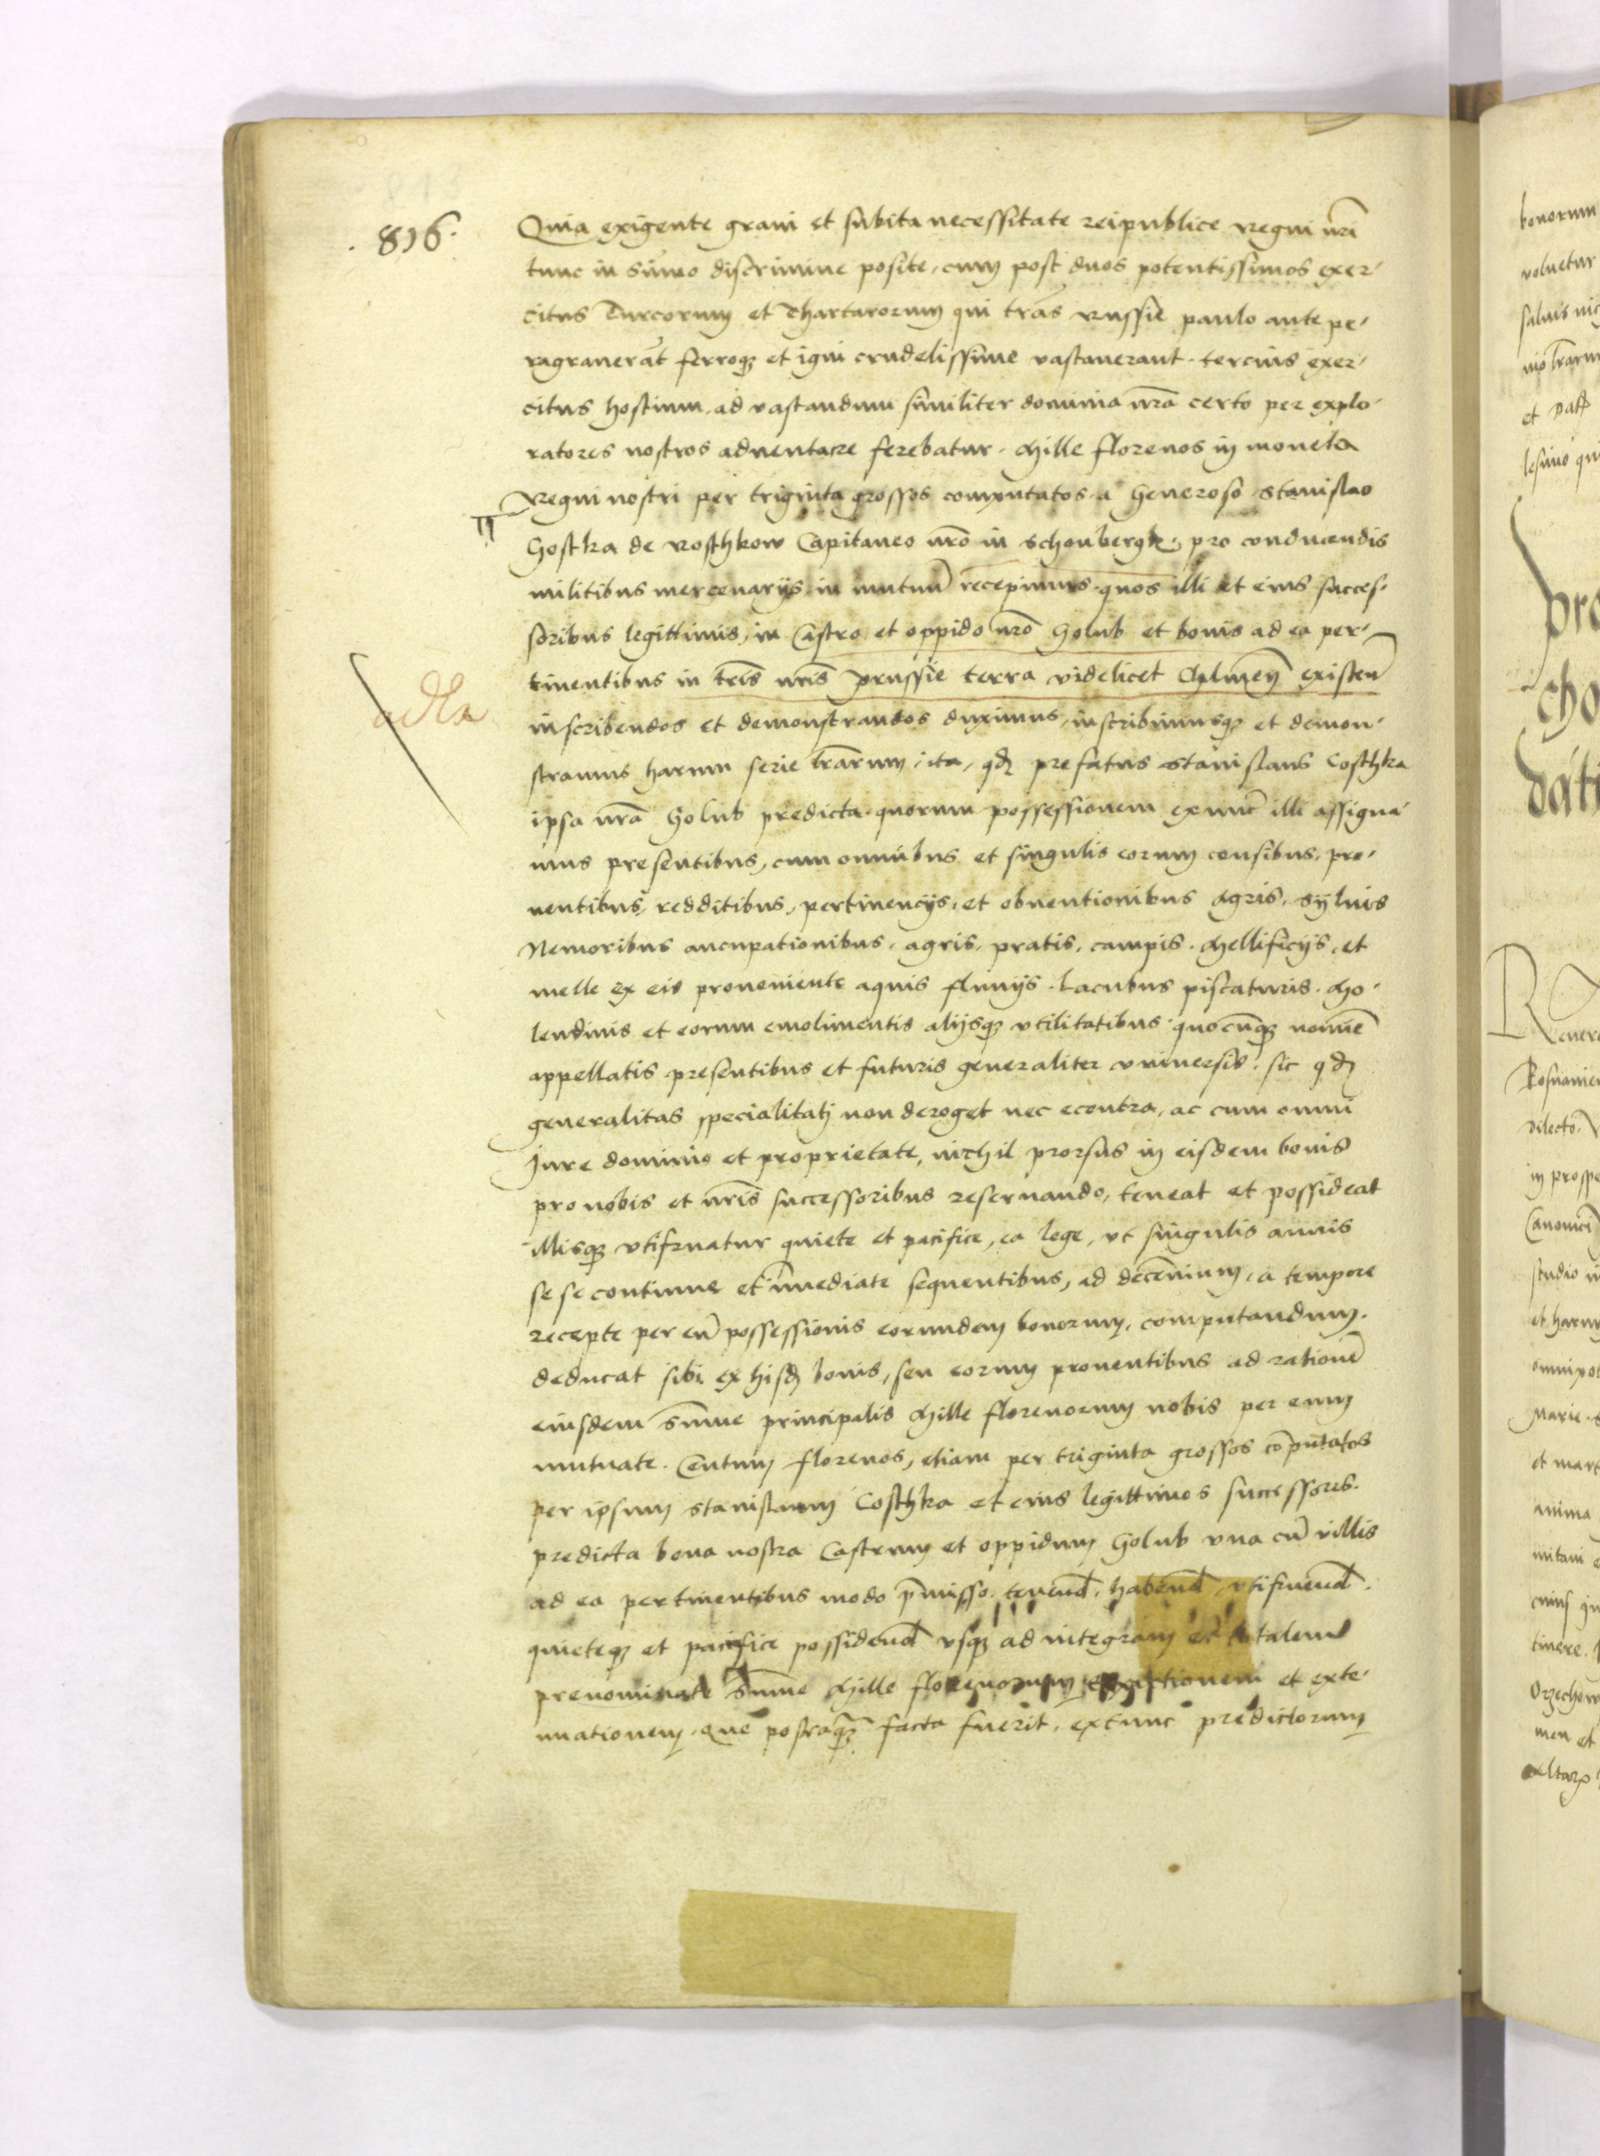 . 816 .
Quia exigente graui et subita necessitate reipublice regni nr̄i
tunc in sūmo discrimine posite, cum post duos potentissimos exer-
citus Turcorum et Thartarorum qui tr̄as russie paulo ante pe-
ragrauerāt ferroq; et igni crudelissime vastauerant. tercius exer-
citus hostium, ad vastandum similiter dominia nr̄a certo per explo-
ratores nostros aduentare ferebatur. Mille florenos in moneta
Regni nostri per triginta grossos computatos a Generoso Stanislao
Costka de roschkow Capitaneo nr̄o in Schonbergk, pro conducendis
militibus mercenarijs in mutuū recepimus, quos illi et eius succes-
soribus legittimis, in Castro et oppido nr̄o Golub et bonis ad ea per-
tinentibus in tr̄is nr̄is prussie terra videlicet Culmeñ existeñ
inscribendos et demonstrandos duximus, inscribimusq; et demon-
stramus harum serie lr̄arum, ita, qd prefatus Stanislaus Costhka
ipsa nr̄a Golub predicta quorum possessionem ex nunc illi assigna-
mus presentibus, cum omnibus et singulis eorum censibus, pro-
uentibus, redditibus, pertinencijs, et obuentionibus Agris, Syluis
Nemoribus aucupationibus, agris, pratis, campis, Mellificijs, et
melle ex eis proueniente aquis fluuijs. Lacubus piscaturis. Mo-
lendinis et eorum emolimentis alijsq; vtilitatibus quocūq; nomīe
appellatis presentibus et futuris generaliter vniuersis. sic qd
generalitas specialitati non deroget nec econtra, ac cum omni
Jure dominio et proprietate, nichil prorsus in eisdem bonis
pro nobis et nr̄is successoribus reseruando, teneat et possideat
illisq; vtifruatur quiete et pacifice, ea lege, vt singulis annis
sese continue et īmediate sequentibus, ad decennium, a tempore
recepte per eū possessionis eorundem bonorum, computandum.
deducat sibi ex hisd bonis, seu eorum prouentibus ad rationē
eiusdem Sūme principalis Mille florenorum nobis per eum
mutuate. Centum florenos, etiam per triginta grossos cōputatos
per ipsum Stanislaum Costhka et eius legittimos successores.
predicta bona nostra Castrum et oppidum Golub vna cū villis
ad ea pertinentibus modo p̄misso. tenend, habend, vtifruend.
quieteq; et pacifice possidend vsq; ad integram et totalem
prenominate Sūme Mille florenorum et exte-
nuationem. que postaq; facta fuerit, extunc predictorum
adla